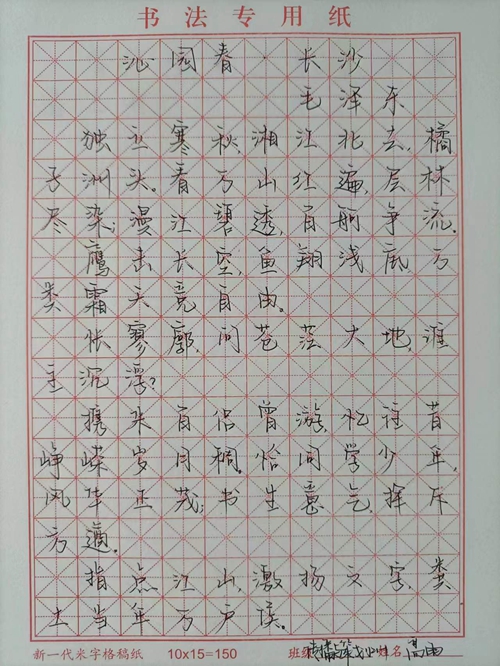 书法专用纸
沁园春 长沙
毛泽东
独立寒秋,湘江北去,橘
子洲头。看万山红遍,层林
尽染;漫江碧透,百舸争流。
鹰击长空,鱼翔浅底,万
类霜天竞自由。
怅寥廓,问苍茫大地,谁
主沉浮?
携来百侣曾游,忆往昔
峥嵘岁月稠。恰同学少年,
风华正茂;书生意气,挥斥
方遒。
指点江山,激扬文字,粪
土当年万户侯。
新一代米字格稿纸 10x15=150 班级 姓名